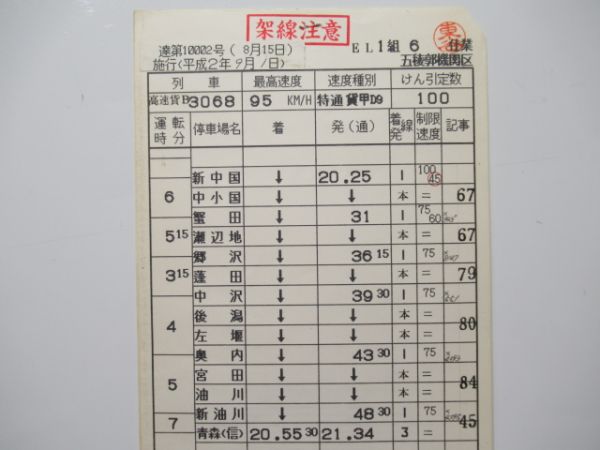 架線注意
達第10002号(8月15日)
EL1組 6 仕業
施行(平成2年9月1日)
五稜郭機関区
列車 最高速度 速度種別 けん引定数
高速貨B3068 95 KM/H 特通貨甲D9 100
運転時分 停車場名 着 発(通) 着発線 制限速度 記事
新中国 ↓ 20.25 1 100 45
6 中小国 ↓ ↓ 本 = 67
蟹田 ↓ 31 1 75 60
5 15 瀬辺地 ↓ ↓ 本 = 67
郷沢 ↓ 36 15 1 75
3 15 蓬田 ↓ ↓ 本 = 79
中沢 ↓ 39 30 1 75
4 後潟 ↓ ↓ 本 = 80
左堰 ↓ ↓ 本 =
奥内 ↓ 43 30 1 75
5 宮田 ↓ ↓ 本 = 84
油川 ↓ ↓ 本 =
7 新油川 ↓ 48 30 1 75 45
青森(信) 20.55 30 21.34 3 =